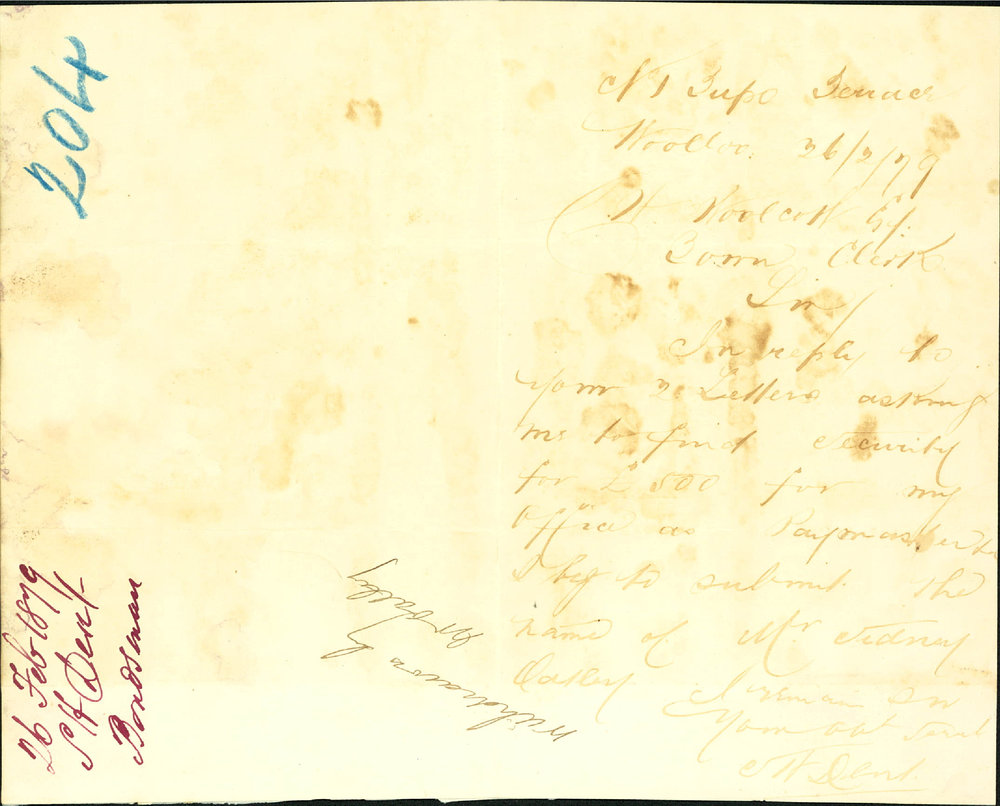 204
26 Feb 1879
S H Dent
Bondsman
Withdrawn by
Mr Oatley
No 1 Tupo Terrace
Woolloo. 26/2/79
W. Woolcott Esq.
Town Clerk
Sir
In reply to
your 2 Letters asking
me to find security
for £500 for my
Office as Paymaster
I beg to submit the
name of Mr Sidney
Oatley I remain Sir
Your obt Servt
S H Dent